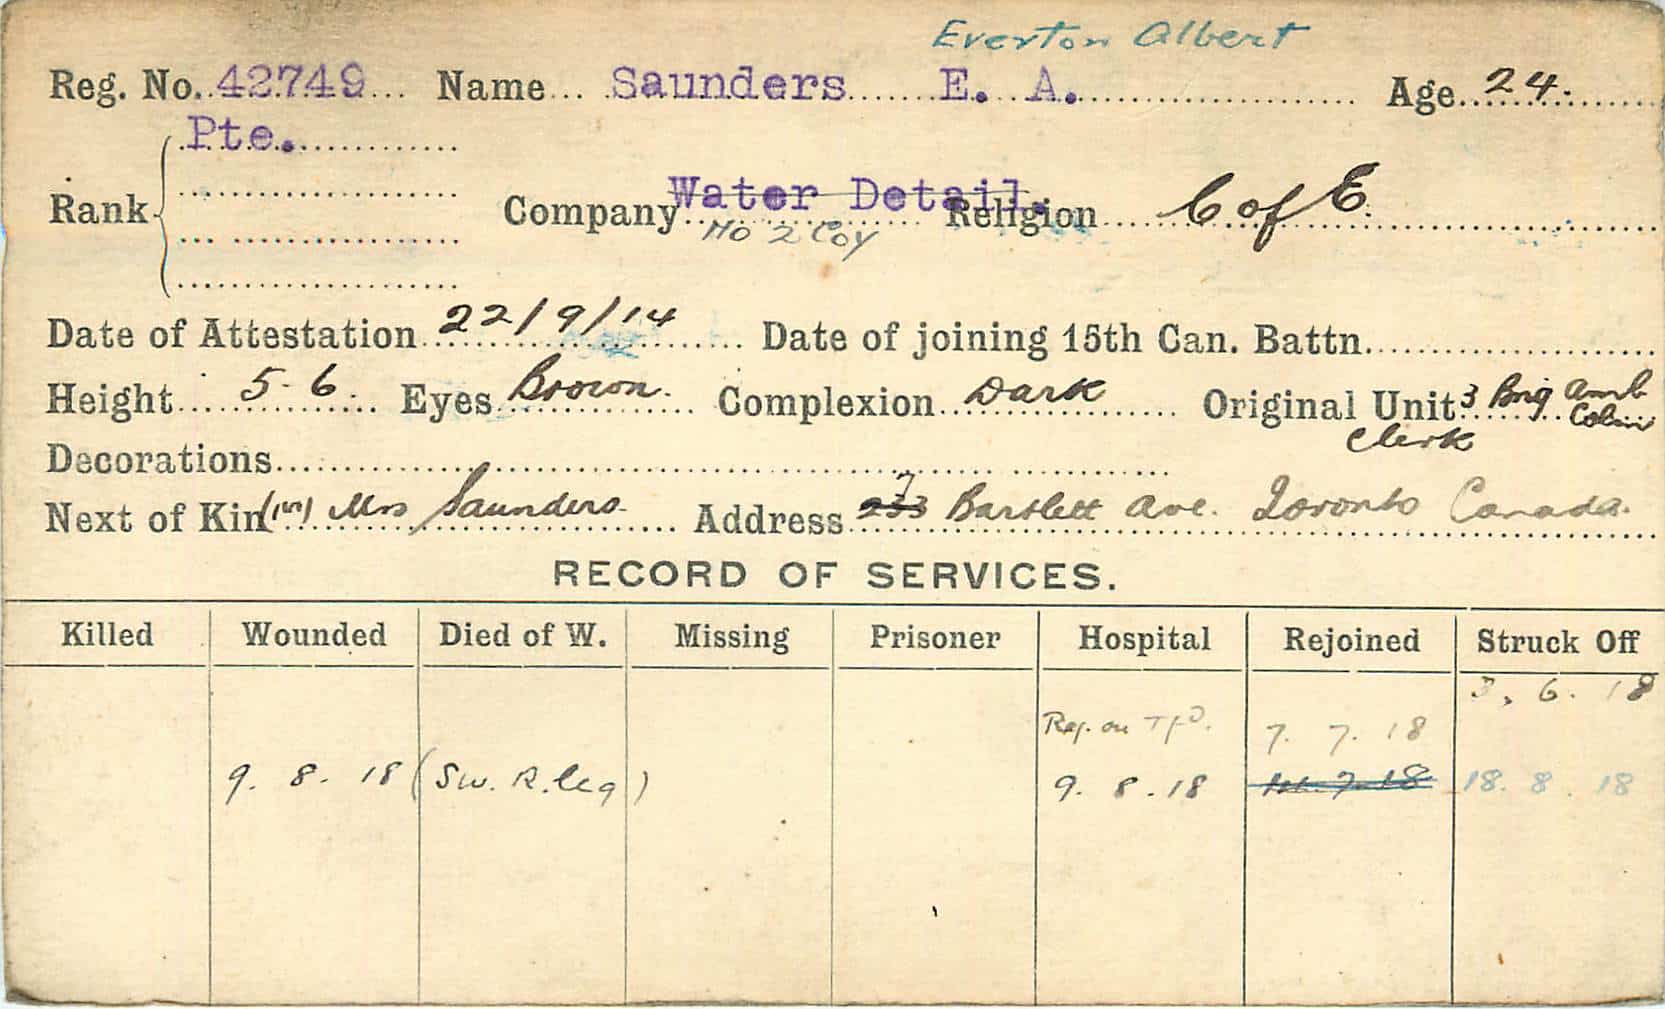 Everton Albert
Reg. No. 42749 Name Saunders E. A. Age 24.
Pte.
Rank Company Water Detail. Religion C of E.
No 2 Coy
Date of Attestation 22/9/14 Date of joining 15th Can. Battn.
Height 5-6 Eyes Brown. Complexion Dark Original Unit 3 Brig Amb Colmn
Clerk
Decorations
7
Next of Kin (m) Mrs Saunders. Address 233 Bartlett Ave. Toronto Canada.
RECORD OF SERVICES.
Killed Wounded Died of W. Missing Prisoner Hospital Rejoined Struck Off
3. 6. 18
Rej. on 7. 7. 18
9. 8. 18 (Sw. R. leg) 9. 8. 18 18. 8. 18